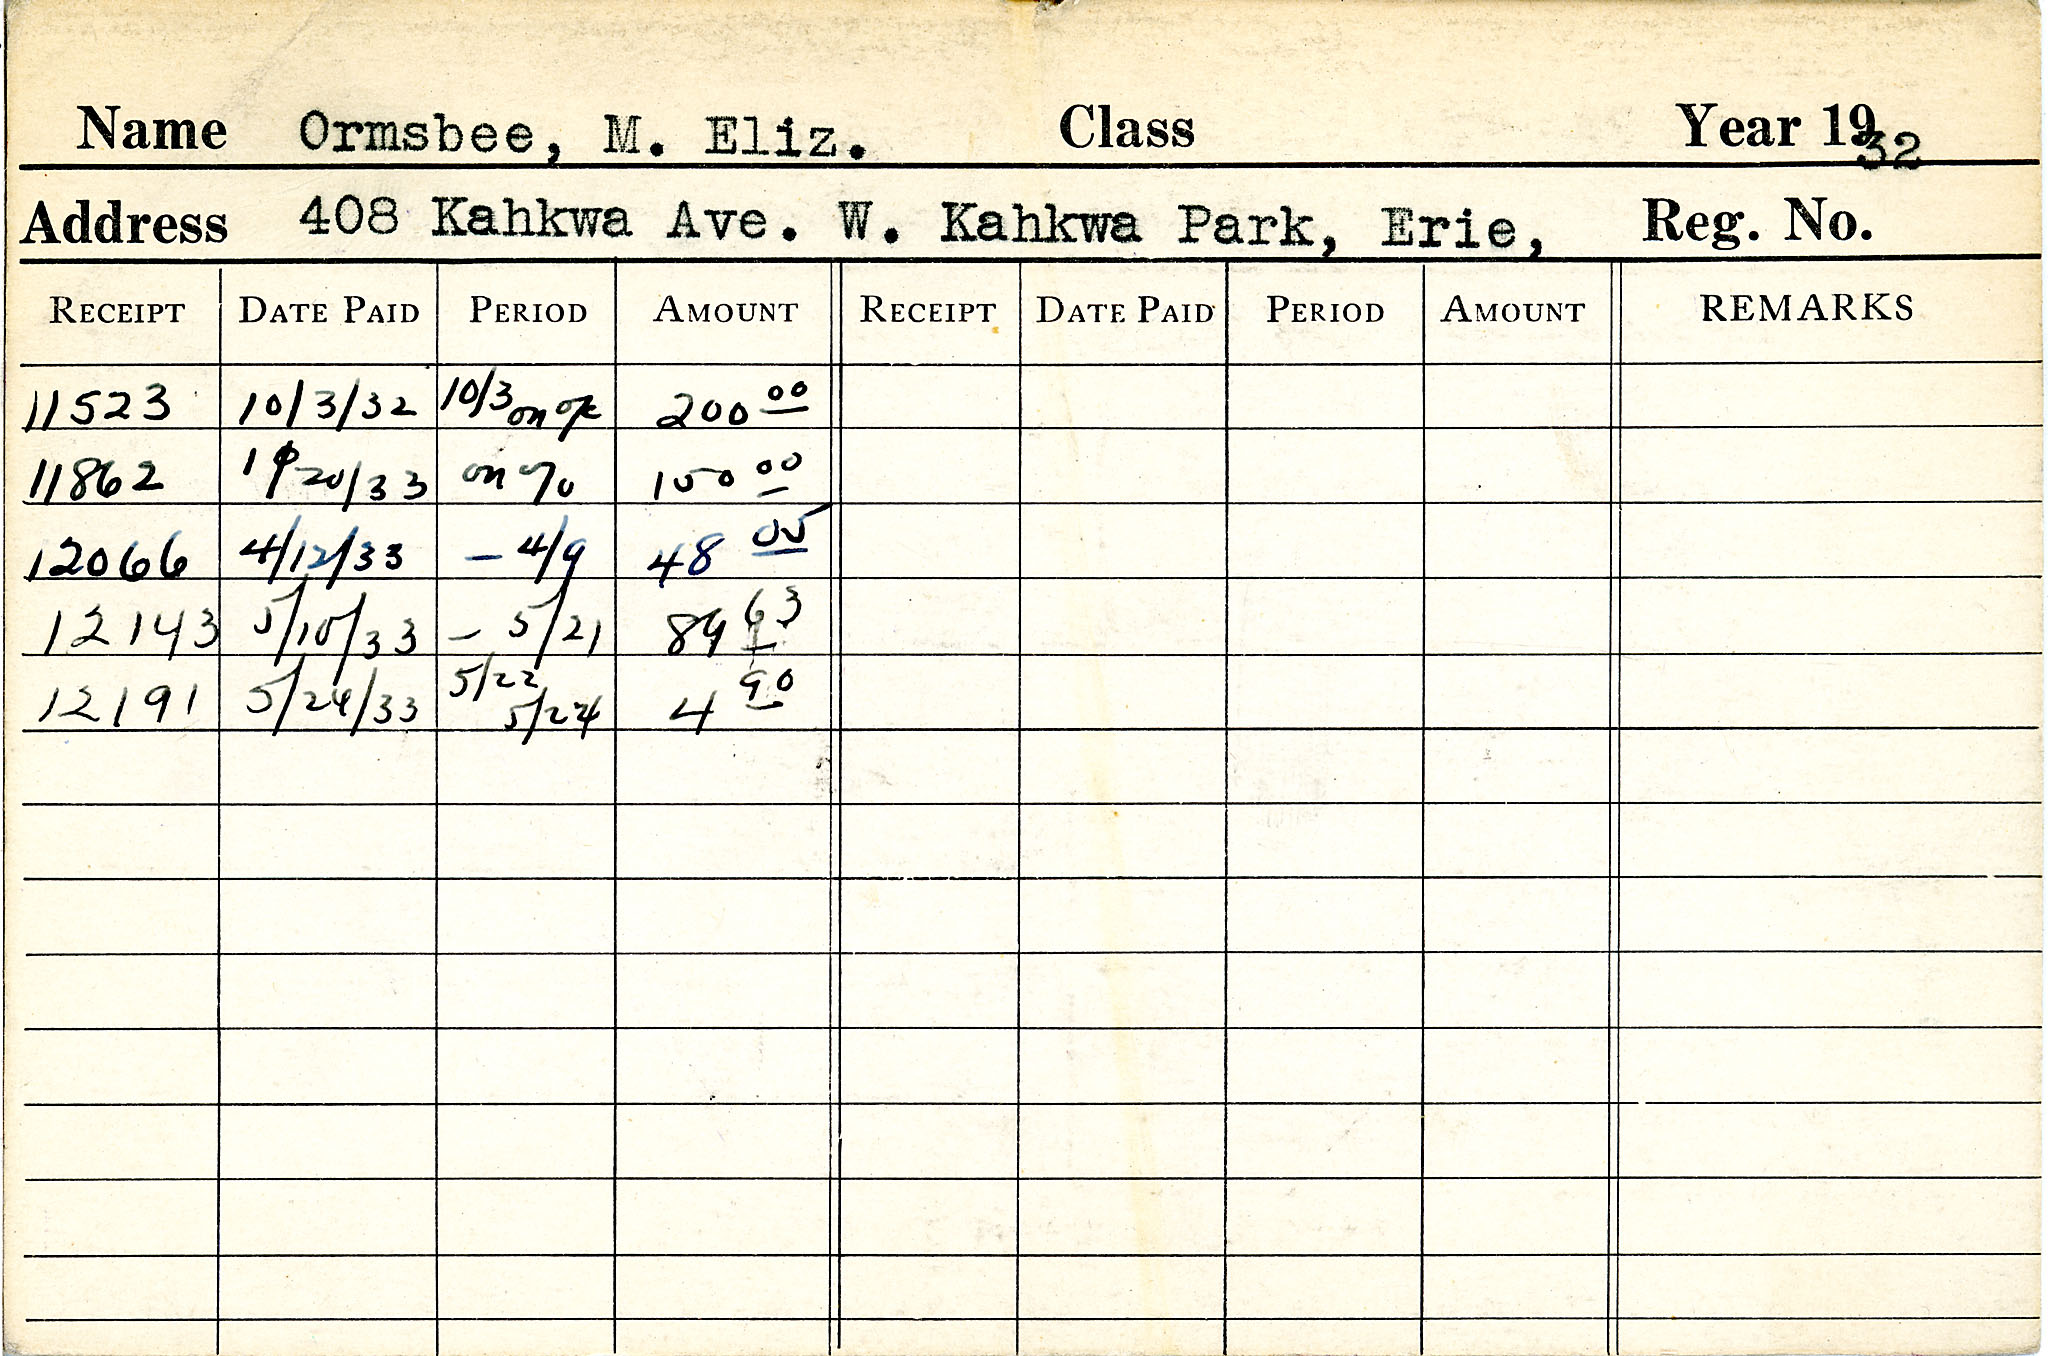 Name Ormsbee, M. Eliz. Class Year 1932
Address 408 Kahkwa Ave. W. Kahkwa Park, Erie, Reg. No.
RECEIPT DATE PAID PERIOD AMOUNT RECEIPT DATE PAID PERIOD AMOUNT REMARKS
11523 10/3/32 10/3 on a/c 200 00
11862 1/20/33 on 150 00
12066 4/12/33 – 4/9 48 05
12143 5/10/33 – 5/21 89 63
12191 5/24/33 5/22 5/24 4 90